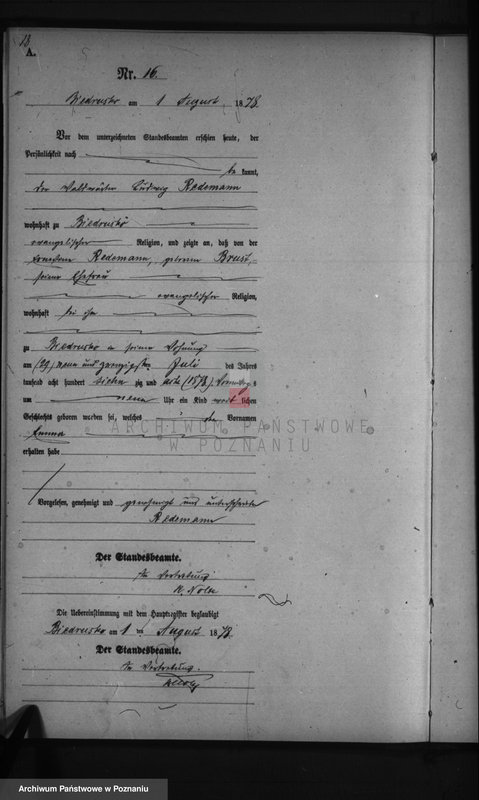 18
A.
Nr. 16.
Biedrusko am 1 August 1878.
Vor dem unterzeichneten Standesbeamten erschien heute, der
Persönlichkeit nach
be kannt,
der Waldwärter Ludwig Redemann
wohnhaft zu Biedrusko
evangelischer Religion, und zeigte an, daß von der
Ernestine Redemann, geborene Brust,
seiner Ehefrau
evangelischer Religion,
wohnhaft bei ihm
zu Biedrusko in seiner Wohnung
am (29) neun und zwanzigsten Juli des Jahres
tausend acht hundert sieben zig und acht (1878) Vormittags
um neun Uhr ein Kind weib lichen
Geschlechts geboren worden sei, welches den Vornamen
Emma
erhalten habe
Vorgelesen, genehmigt und genehmigt und unterschrieben
Redemann
Der Standesbeamte.
In Vertretung
Die Uebereinstimmung mit dem Hauptregister beglaubigt
Biedrusko am 1 ten August 1878.
Der Standesbeamte.
In Vertretung.
ARCHIWUM PAŃSTWOWE
W POZNANIU
Archiwum Państwowe w Poznaniu